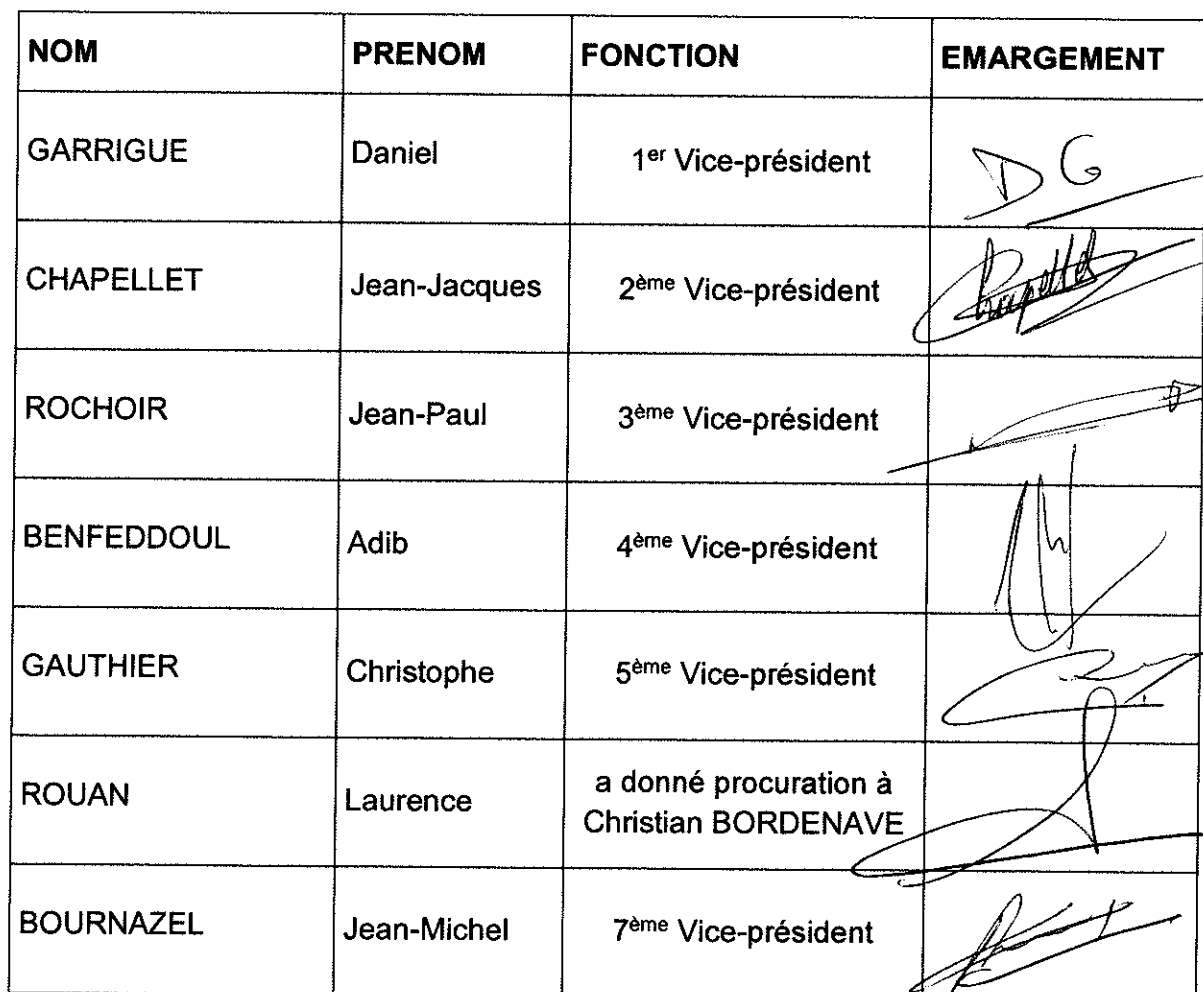 NOM PRENOM FONCTION EMARGEMENT
GARRIGUE Daniel 1er Vice-président D G
CHAPELLET Jean-Jacques 2ème Vice-président Chapellet
ROCHOIR Jean-Paul 3ème Vice-président
BENFEDDOUL Adib 4ème Vice-président
GAUTHIER Christophe 5ème Vice-président
ROUAN Laurence a donné procuration à
Christian BORDENAVE
BOURNAZEL Jean-Michel 7ème Vice-président